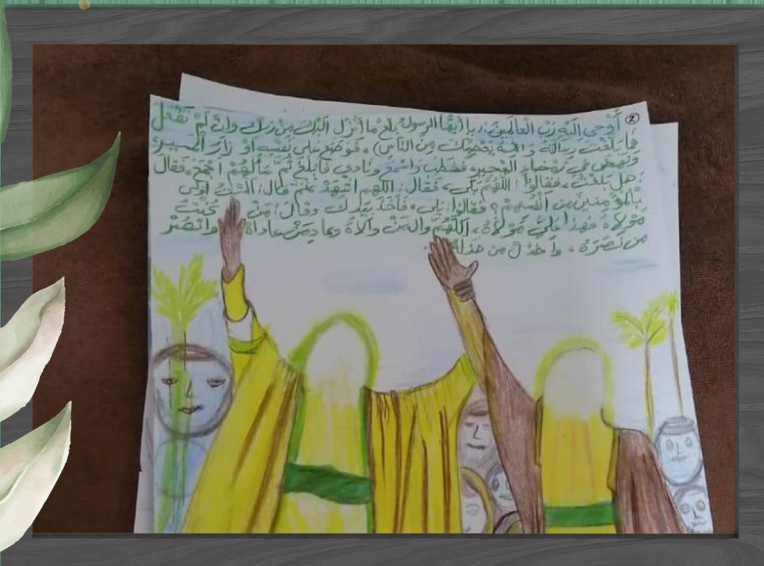 ② أوحى إليه رب العالمين: (يا أيها الرسول بلغ ما أنزل إليك من ربك وإن لم تفعل
فما بلغت رسالته والله يعصمك من الناس)، فوضع على نفسه أوزار المسير
ونهض في رمضاء الهجير فخطب واسمع ونادى فابلغ ثم سألهم اجمع، فقال
: هل بلغت، فقالوا: اللهم بلى، فقال: اللهم اشهد ثم قال: ألست أولى
بالمؤمنين من أنفسهم؟ فقالوا: بلى، فأخذ بيدك وقال: من كنت
مولاه فهذا علي مولاه، اللهم وال من والاه وعاد من عاداه وانصر
من نصره، واخذل من خذله